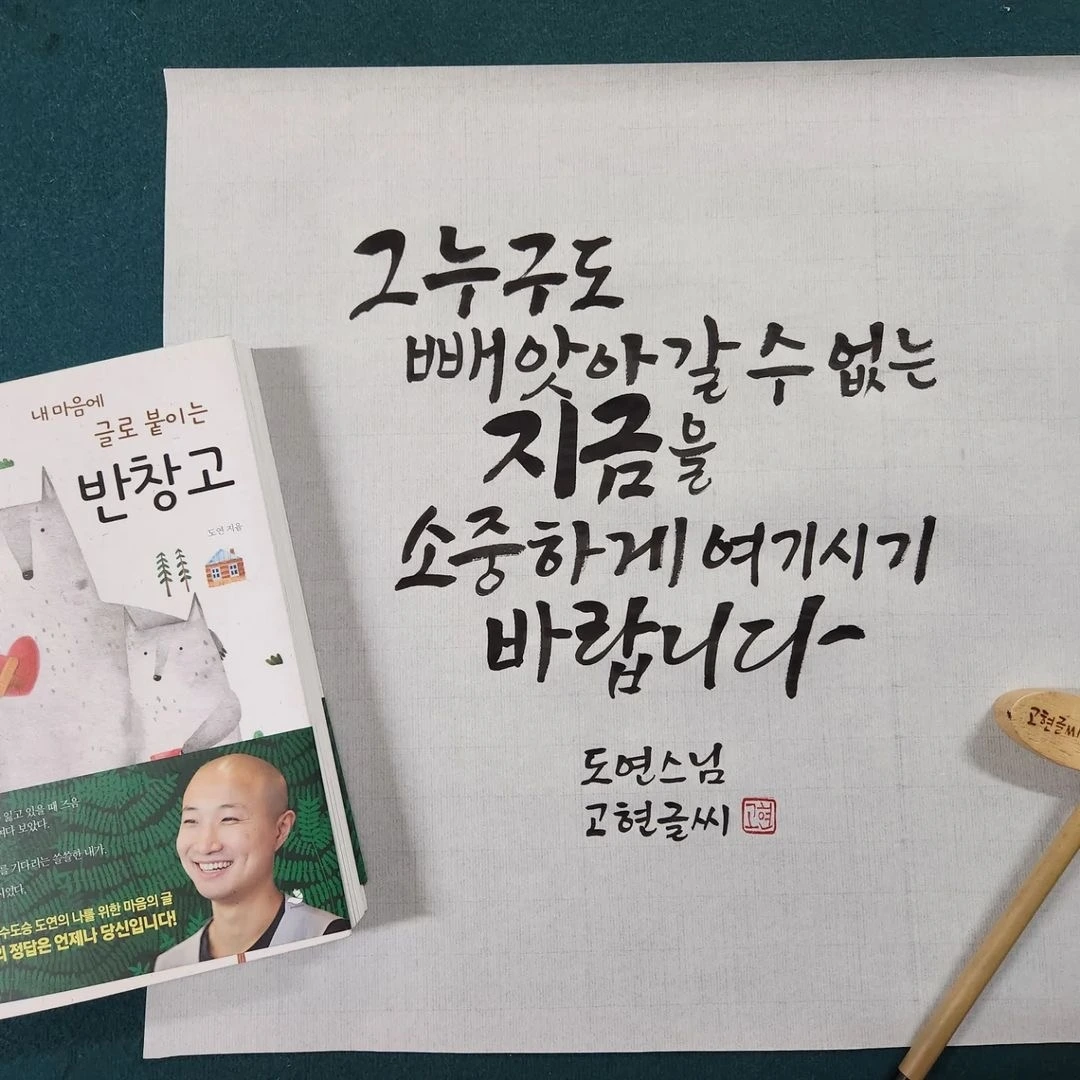 그 누구도
빼앗아 갈 수 없는
지금을
소중하게 여기시기
바랍니다
도연스님
고현글씨
고현
내 마음에
글로 붙이는
반창고
도연 지음
잃고 있을 때 즈음
보았다.
기다리는 쓸쓸한 내가.
수도승 도연의 나를 위한 마음의 글
정답은 언제나 당신입니다!
고현글씨